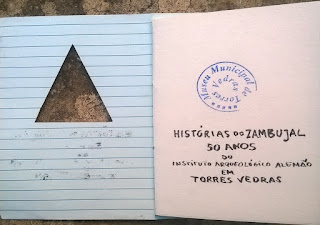 Museu Municipal de Torres Vedras
HISTÓRIAS DO ZAMBUJAL
50 ANOS
DO
INSTITUTO ARQUEOLÓGICO ALEMÃO
EM
TORRES VEDRAS